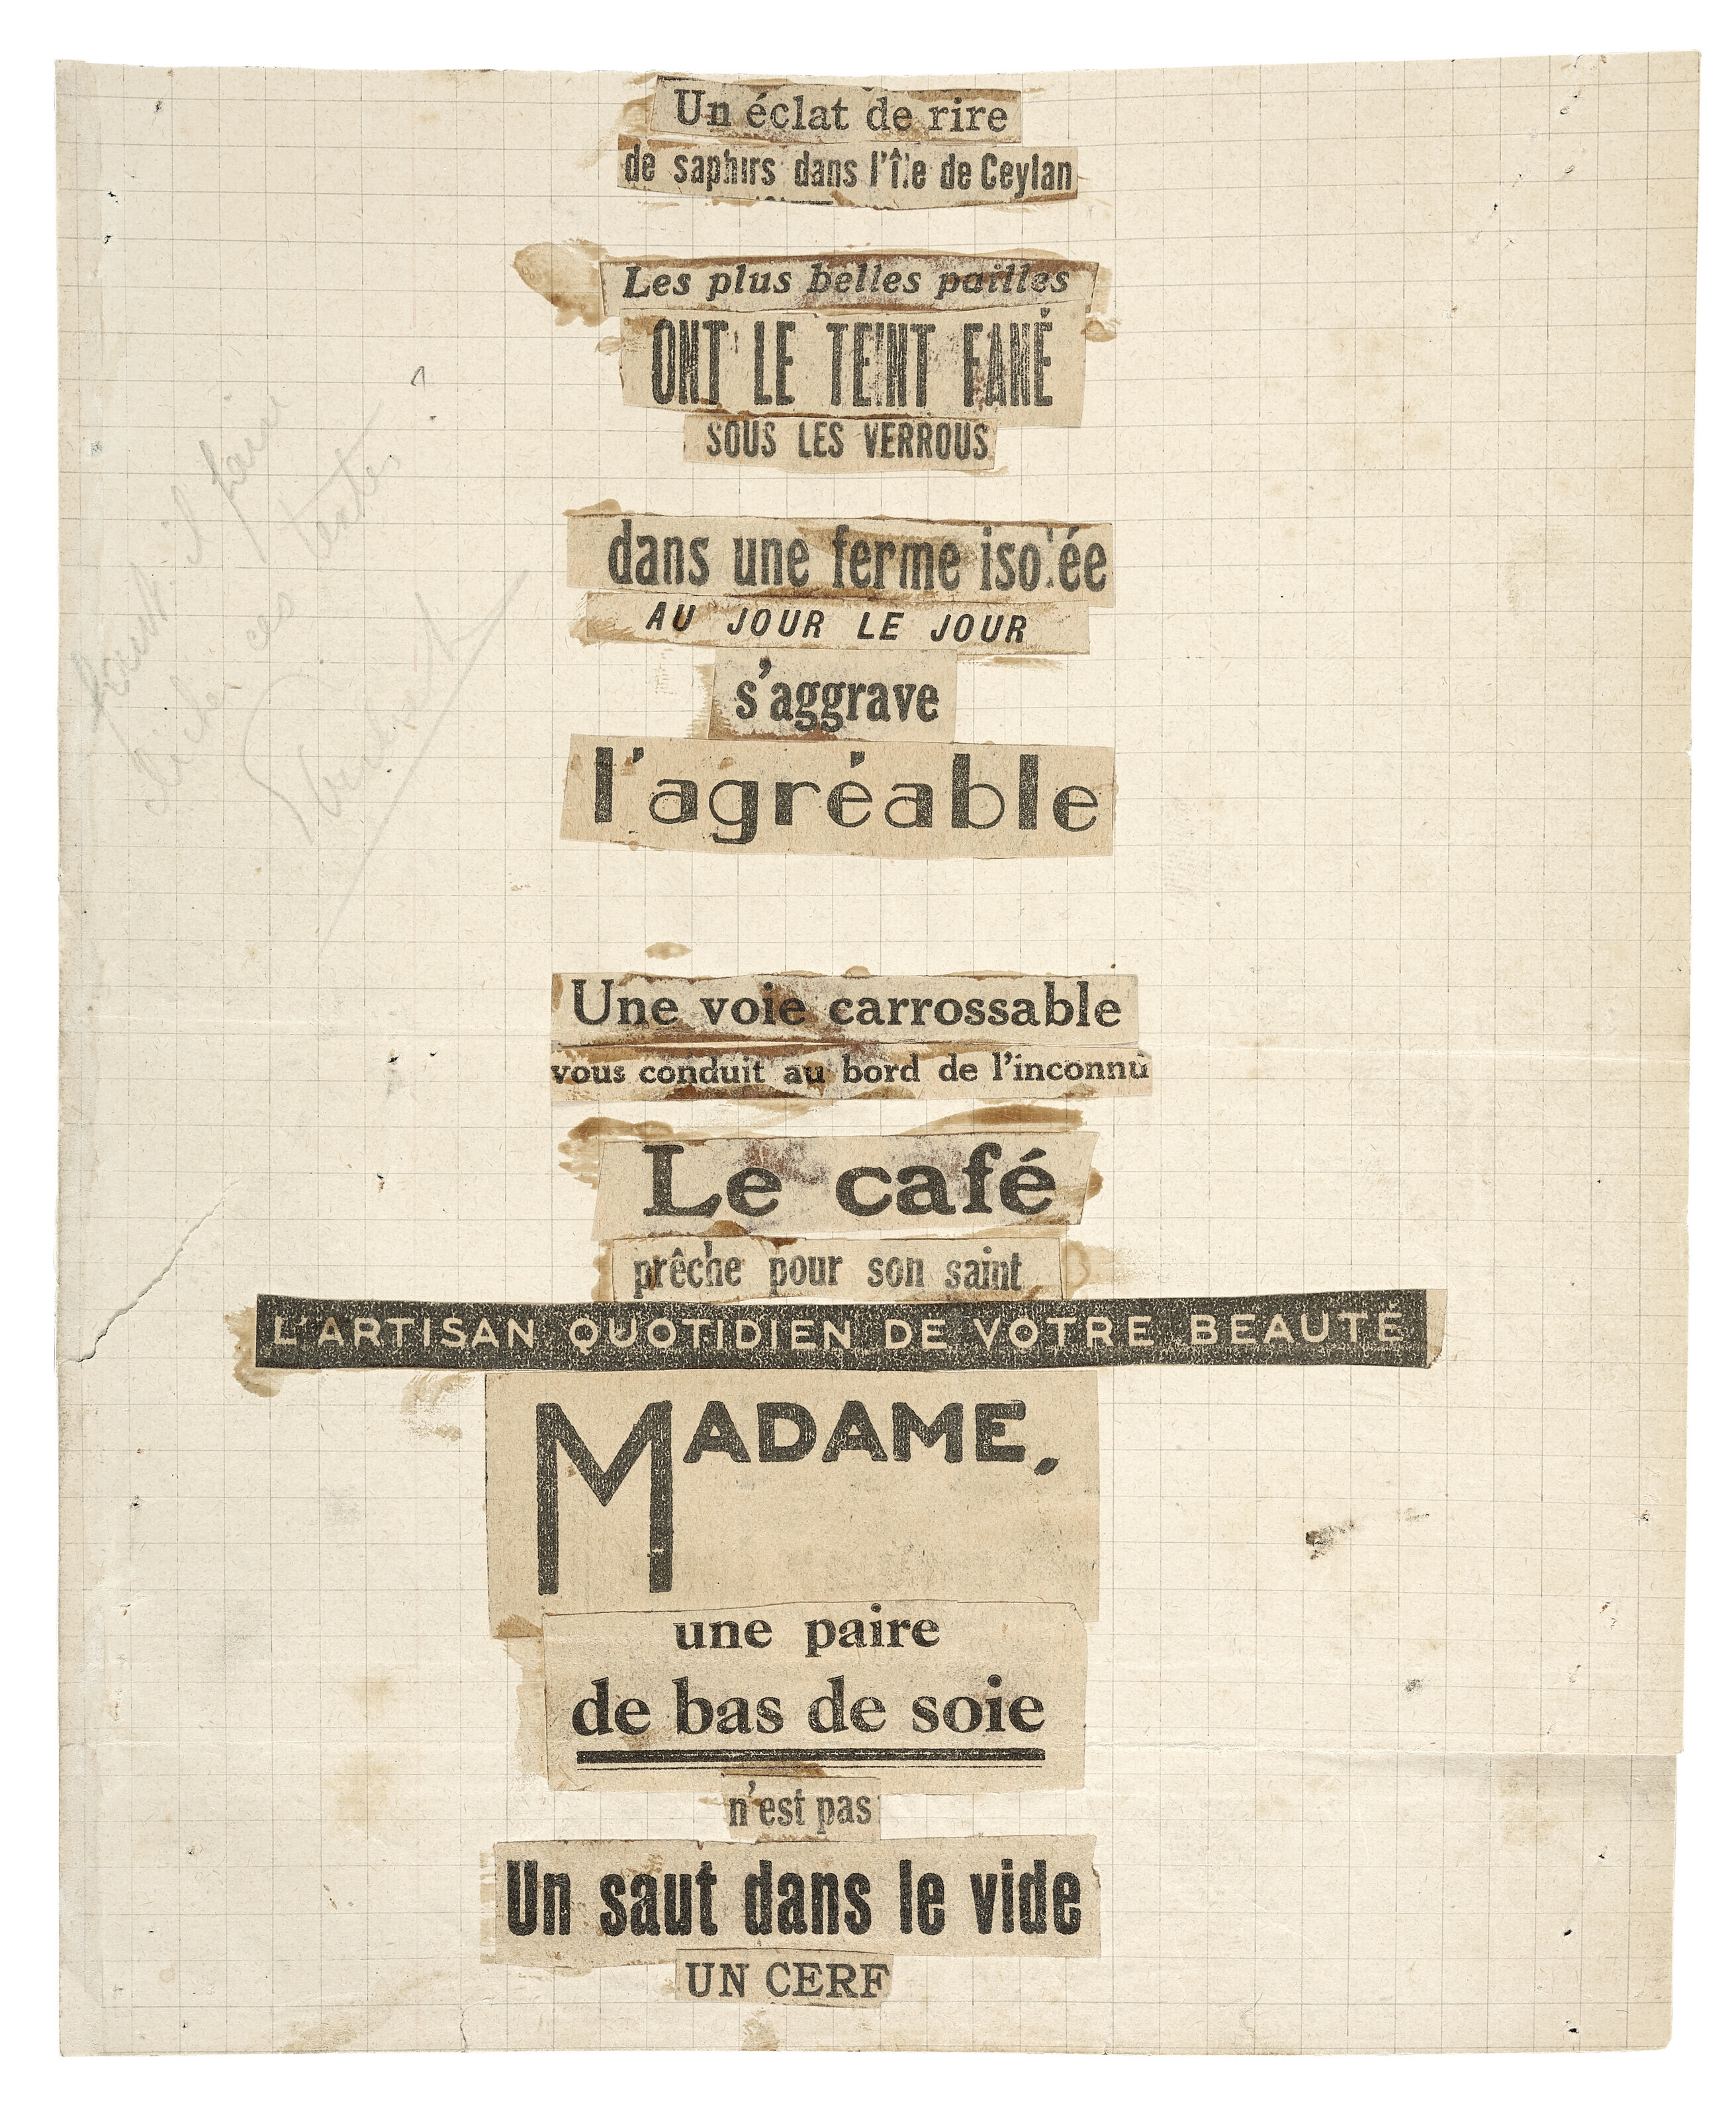 Un éclat de rire
de saphirs dans l'île de Ceylan
Les plus belles pailles
ONT LE TEINT FANÉ
SOUS LES VERROUS
dans une ferme isolée
AU JOUR LE JOUR
s'aggrave
l'agréable
Une voie carrossable
vous conduit au bord de l'inconnu
Le café
prêche pour son saint
L'ARTISAN QUOTIDIEN DE VOTRE BEAUTÉ
MADAME,
une paire
de bas de soie
n'est pas
Un saut dans le vide
UN CERF
faut il faire
ces textes